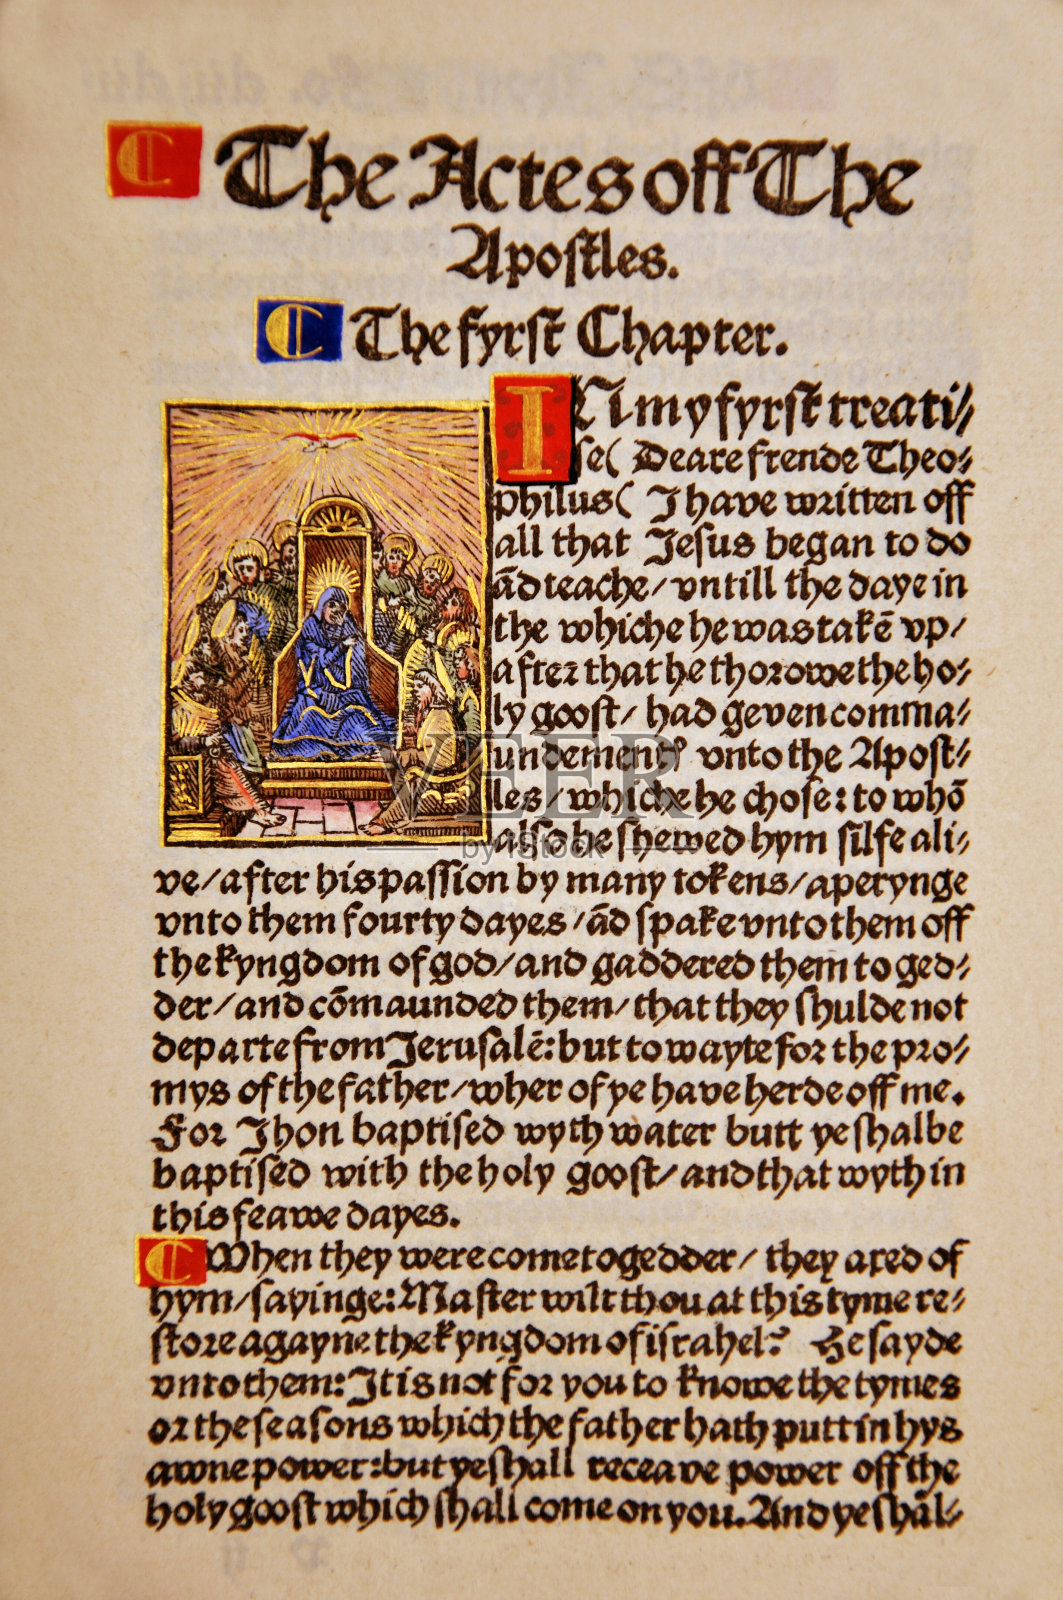 C The Actes off The
Apostles.
C The fyrst Chapter.
IN my fyrst treati⸗
se( Deare frende Theo⸗
philus( J have written off
all that Jesus began to do
ãd teache/ vntill the daye in
the whiche he was takẽ vp/
after that he thorowe the ho⸗
ly goost/ had geven comma⸗
undement⁹ vnto the Apost⸗
les/ whiche he chose: to whõ
also he shewed hym silfe ali⸗
ve/ after his passion by many tokens/ aperynge
vnto them fourty dayes/ ãd spake vnto them off
the kyngdom of god/ and gaddered them to ged⸗
der/ and cõmaunded them/ that they shulde not
departe from Jerusalẽ: but to wayte for the pro⸗
mys of the father/ wher of ye have herde off me.
For Jhon baptised wyth water butt ye shalbe
baptised with the holy goost/ and that wyth in
this feawe dayes.
C When they were come togedder/ they axed of
hym/ sayinge: Master wilt thou at this tyme re⸗
store agayne the kyngdom of israhel? He sayde
vnto them: Jt is not for you to knowe the tymes
or the seasons which the father hath putt in hys
awne power: but ye shall receave power off the
holy goost which shall come on you. And ye shal⸗
VEER
by iStock